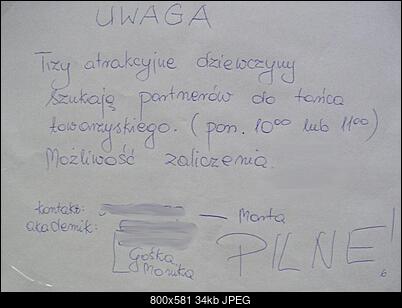 UWAGA
Trzy atrakcyjne dziewczyny
szukają partnerów do tańca
towarzyskiego. (pon. 10⁰⁰ lub 11⁰⁰)
Możliwość zaliczenia.
kontakt: — Marta
akademik:
Gośka
Monika
PILNE!
800x581 34kb JPEG